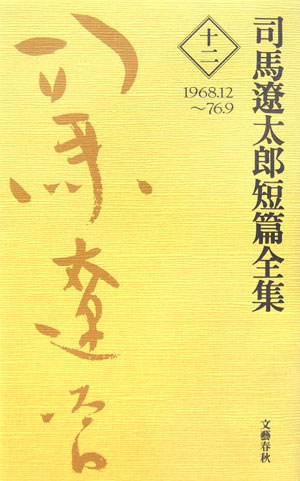 司馬遼太郎短篇全集
十二
1968.12
〜76.9
司馬遼太郎
文藝春秋